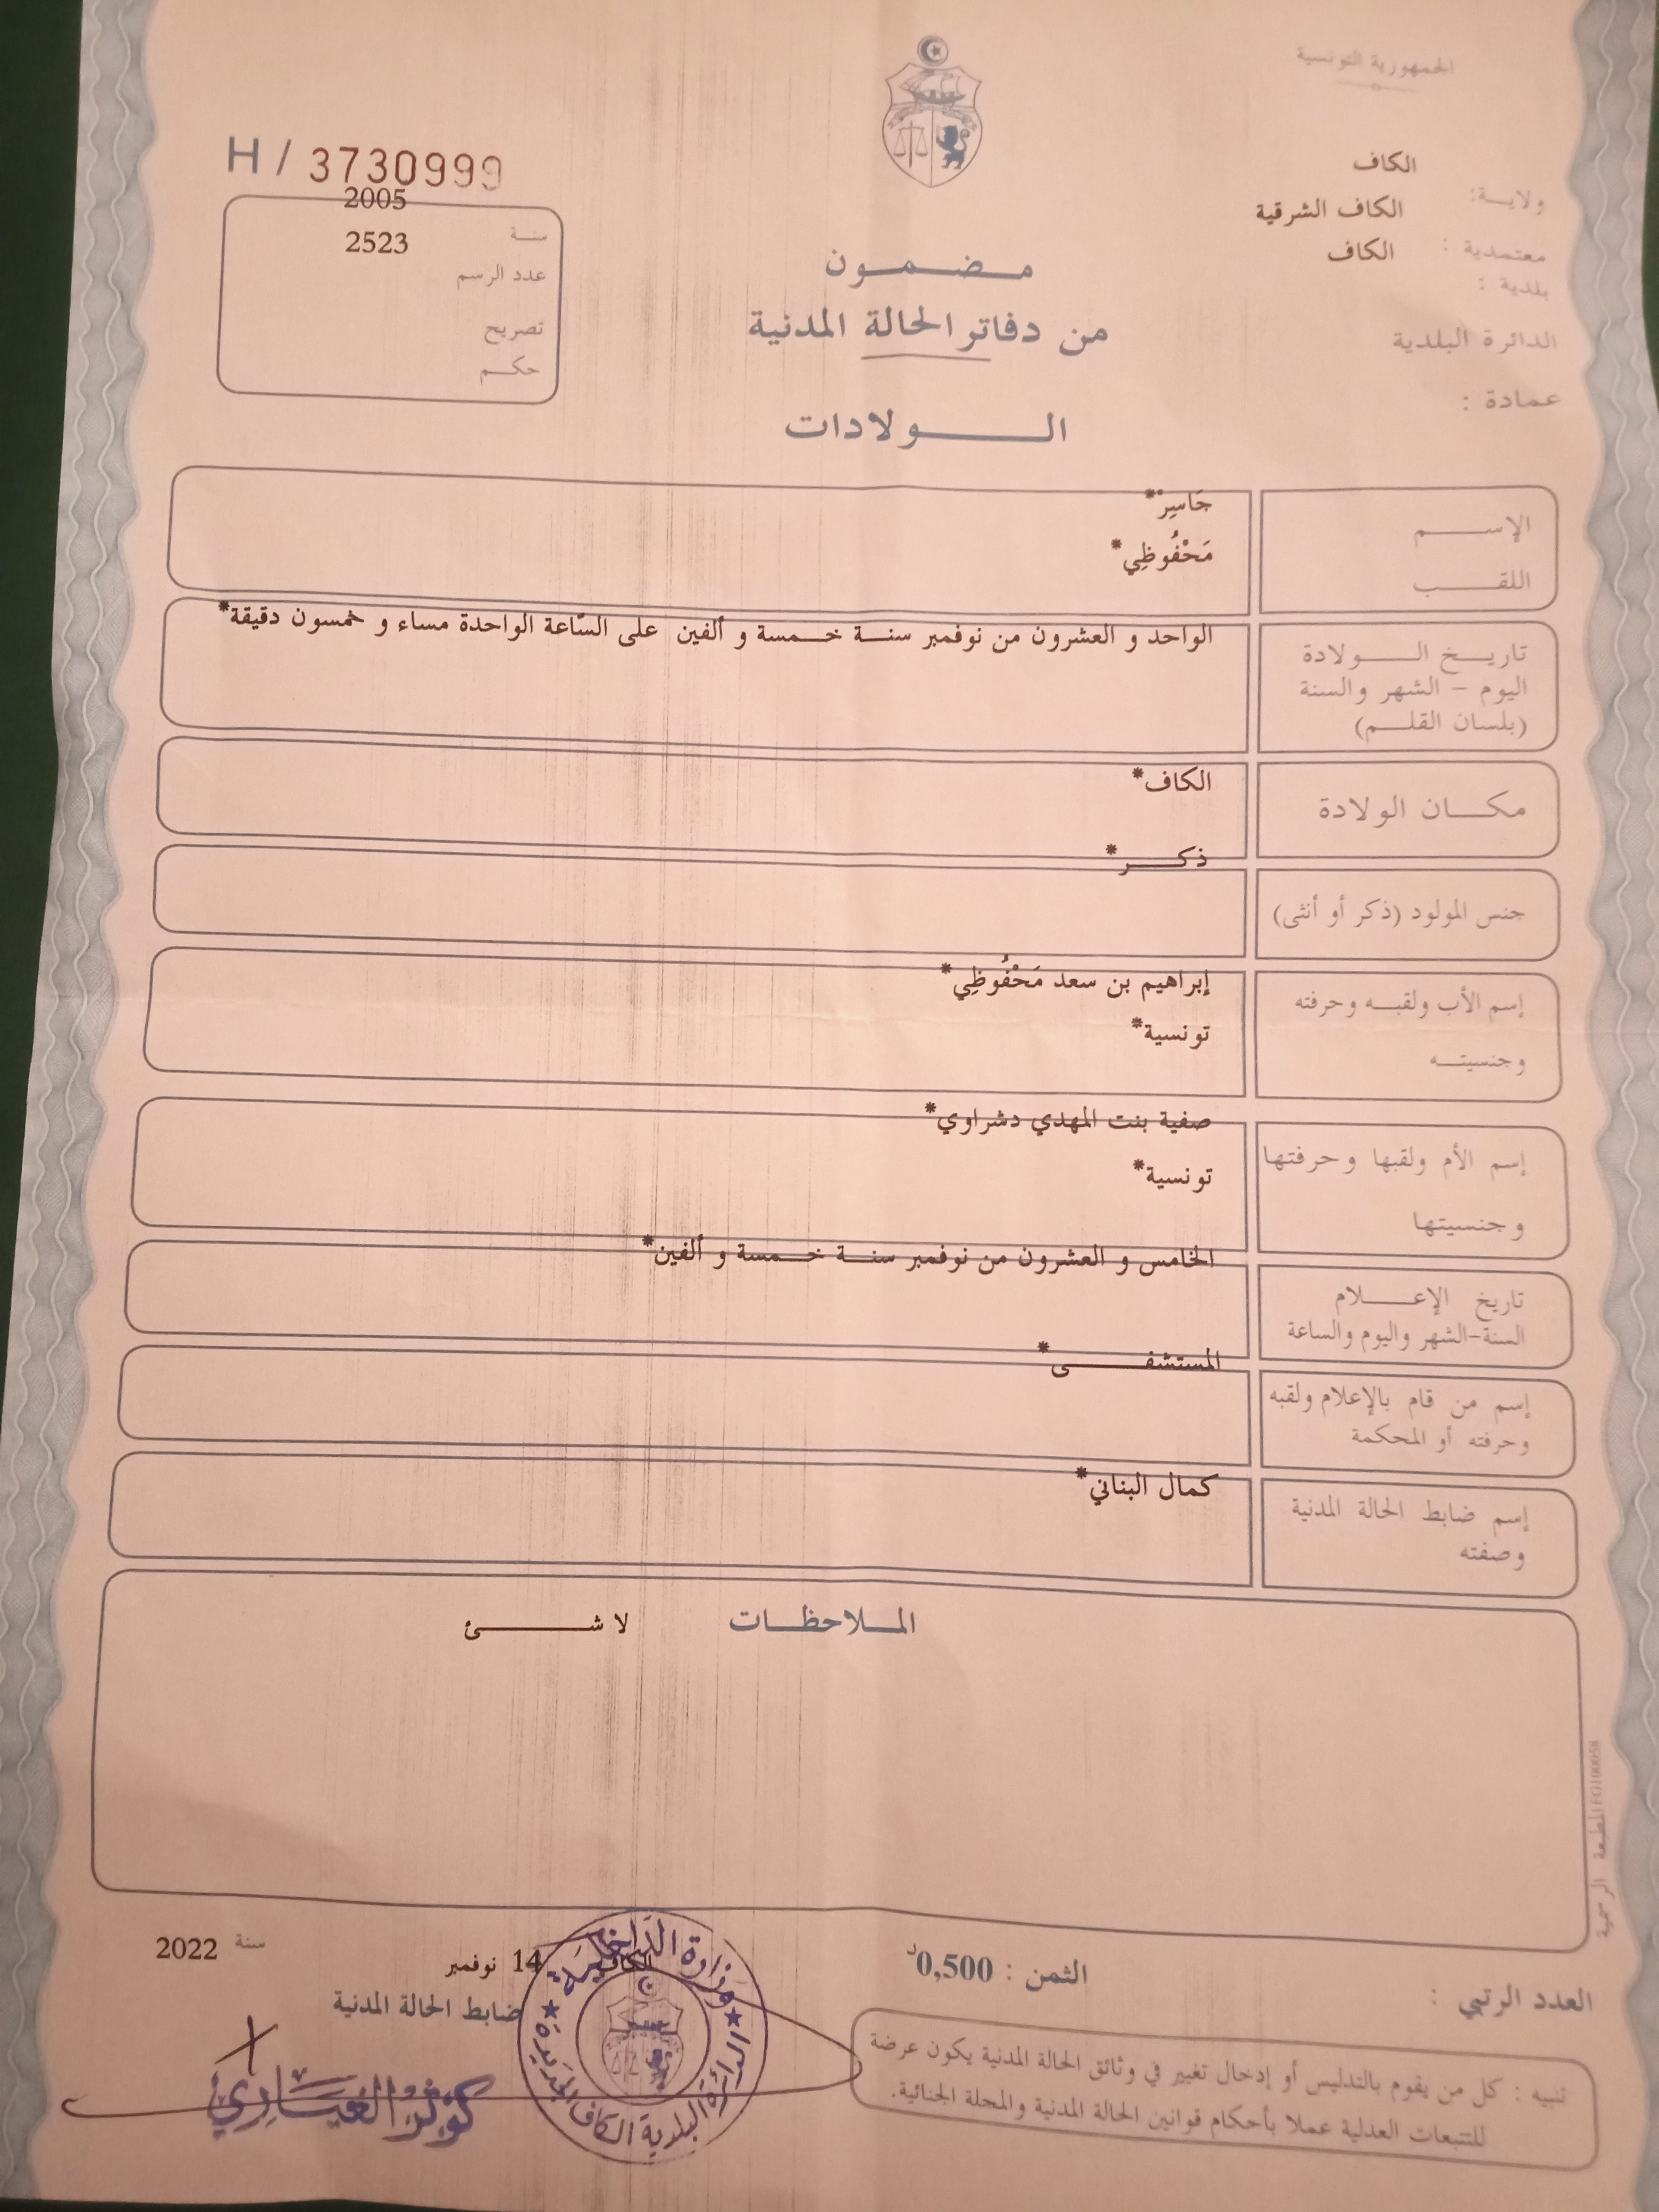 الجمهورية التونسية
H / 3730999
ولايـــة: الكاف
معتمدية : الكاف الشرقية
بلدية : الكاف
الدائرة البلدية
عمادة :
سنـــة 2005
عدد الرسم 2523
تصريح
حكـــم
مـــضـــمـــون
من دفاتر الحالة المدنية
الـــــولادات
الإســـــم جَاسِرْ*
اللقـــــب مَحْفُوظِي*
تاريـــخ الـــــولادة الواحد و العشرون من نوفمبر سنـــة خـــمسة و ألفين على السّاعة الواحدة مساء و خمسون دقيقة*
اليوم – الشهر والسنة
(بلسان القلـــم)
مكـــان الولادة الكاف*
جنس المولود (ذكر أو أنثى) ذكـــــر*
إسم الأب ولقبـــه وحرفته إبراهيم بن سعد مَحْفُوظِي*
وجنسيتـــه تونسية*
إسم الأم ولقبها وحرفتها صفية بنت المهدي دشراوي*
وجنسيتها تونسية*
تاريخ الإعـــــلام الخامس و العشرون من نوفمبر سنـــة خـــمسة و ألفين*
السنة-الشهر واليوم والساعة
إسم من قام بالإعلام ولقبه المستشفـــــى*
وحرفته أو المحكمة
إسم ضابط الحالة المدنية كمال البناني*
وصفته
الملاحظـــات لا شـــــئ
المطبعة الرسمية
العدد الرتبي :
الثمن : 0,500د
الكاف 14 نوفمبر سنة 2022
ضابط الحالة المدنية
وزارة الداخلية
الدائرة البلدية الكاف
تنبيه : كل من يقوم بالتدليس أو إدخال تغيير في وثائق الحالة المدنية يكون عرضة
للتتبعات العدلية عملا بأحكام قوانين الحالة المدنية والمجلة الجنائية.